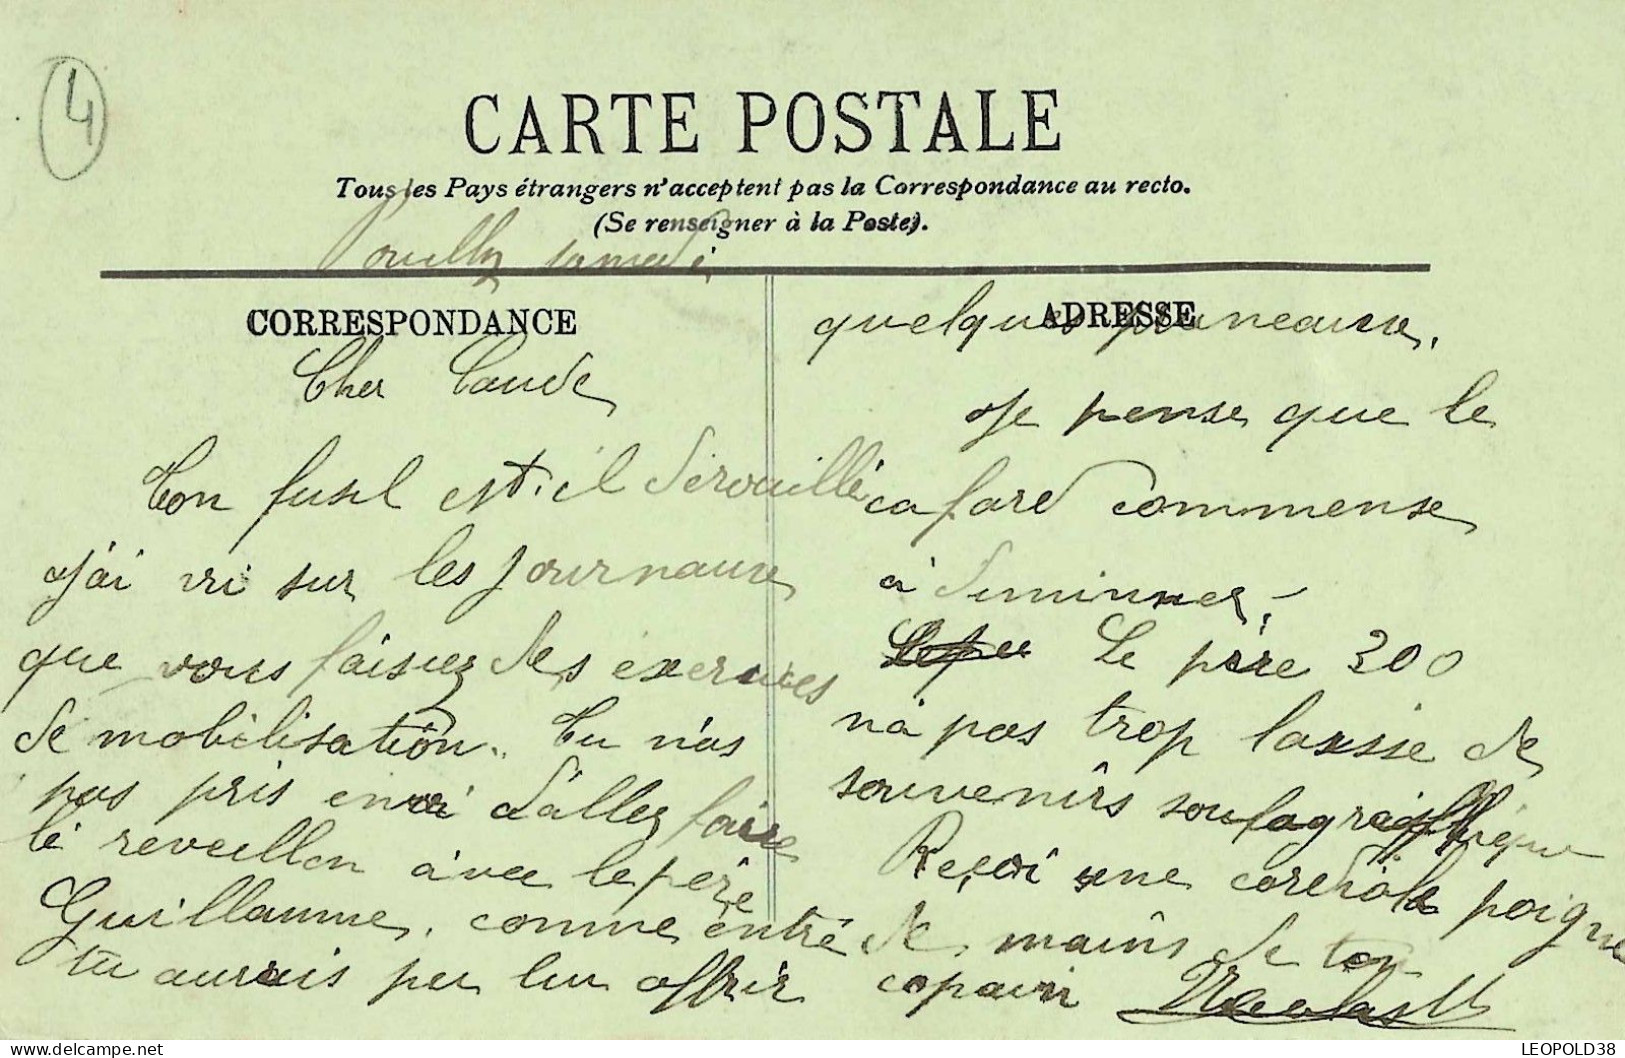 4
CARTE POSTALE
Tous les Pays étrangers n'acceptent pas la Correspondance au recto.
(Se renseigner à la Poste).
Pouilly samedi
CORRESPONDANCE
Cher Claude
Ton fusil est-il dérouillé
j'ai vu sur les journaux
que vous faisiez des exercices
de mobilisation. Tu n'as
pas pris envi d'allez faire
le reveillon avec le père
Guillaume, comme entré
tu aurais peu lui offrir
ADRESSE
quelques pruneaux.
Je pense que le
cafard commense
à diminuer.
Le père 300
n'a pas trop laissie de
souvenirs
Reçoi une cordiale poigne
de mains de ton
copain
LEOPOLD38